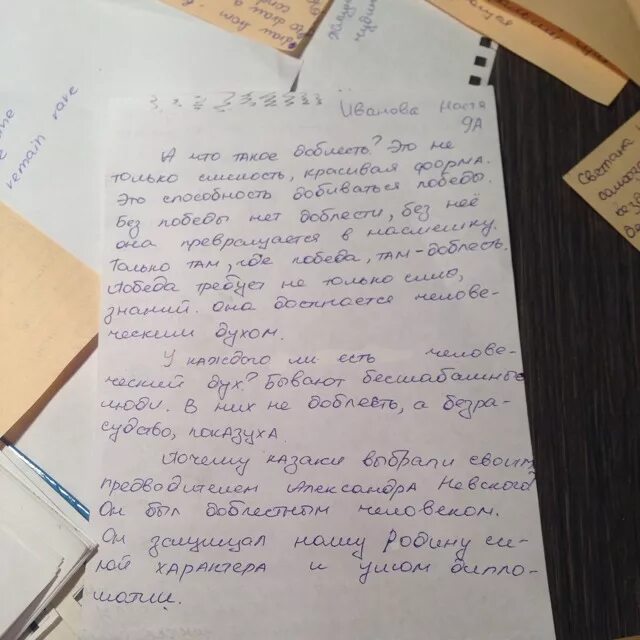 draw hom
to draw a
remain rare
Светлана
Иванова Настя
9А
А что такое доблесть? Это не
только смелость, красивая форма.
Это способность добиваться победы.
Без победы нет доблести, без неё
она превращается в насмешку.
Только там, где победа, там - доблесть.
Победа требует не только сило,
знаний. она достигается челове-
ческим духом.
У каждого ли есть челове-
ческий дух? Бывают бесшабашные
люди. В них не доблесть, а безрас-
судство, показуха.
Почему казаки выбрали своим
предводителем Александра Невского?
Он был доблестным человеком.
Он защищал нашу Родину си-
лой характера и умом дипло-
матии.